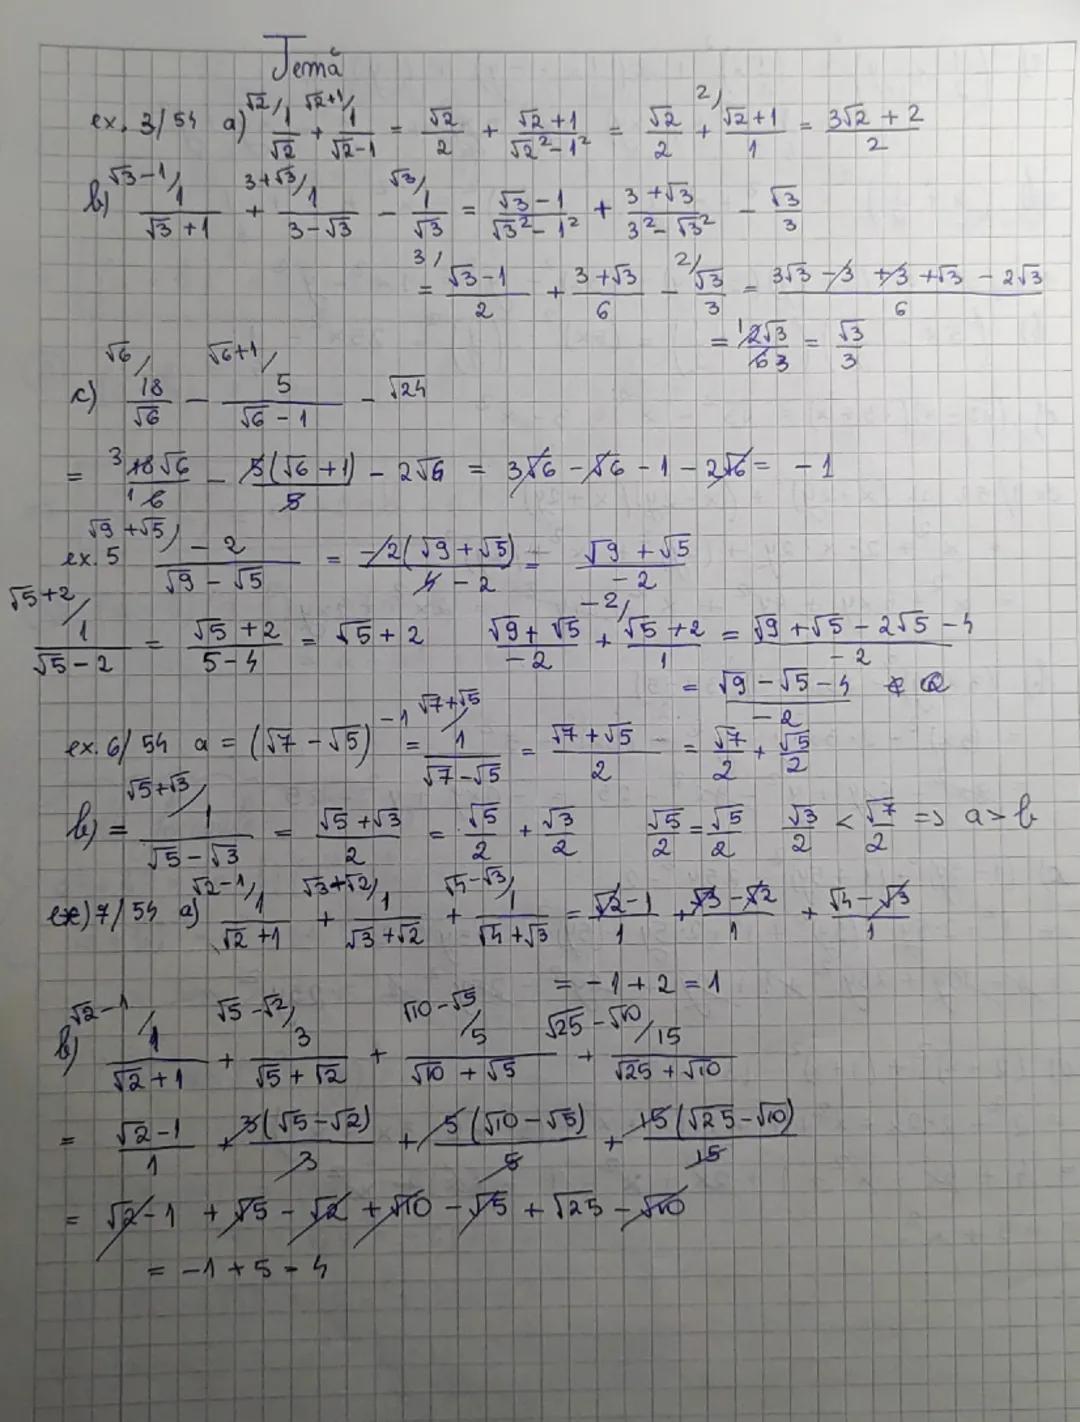 Temă
ex. 3/54 a) √2/ 1/√2 + √2+1/ 1/(√2-1) = √2/2 + (√2+1)/(√2²-1²) = √2/2 + 2/ (√2+1)/1 = (3√2+2)/2
b) √3-1/ 1/(√3+1) + 3+√3/ 1/(3-√3) - √3/ 1/√3 = (√3-1)/(√3²-1²) + (3+√3)/(3²-√3²) - √3/3
= 3/ (√3-1)/2 + (3+√3)/6 - 2/ √3/3 = (3√3-3+3+√3-2√3)/6
= 2√3/6 3 = √3/3
c) √6/ 18/√6 - √6+1/ 5/(√6-1) - √24
= 3 18√6/1 6 - 5(√6+1)/5 - 2√6 = 3√6-√6-1-2√6 = -1
ex. 5 √9+√5/ -2/(√9-√5) = -2(√9+√5)/4-2 = (√9+√5)/-2
√5+2/ 1/(√5-2) = (√5+2)/(5-4) = √5+2 (√9+√5)/-2 + -2/ (√5+2)/1 = (√9+√5-2√5-4)/-2
= (√9-√5-4)/-2 ∉ Q
ex. 6/54 a = (√7-√5)⁻¹ = √7+√5/ 1/(√7-√5) = (√7+√5)/2 = √7/2 + √5/2
b) = √5+√3/ 1/(√5-√3) = (√5+√3)/2 = √5/2 + √3/2 √5/2 = √5/2 √3/2 < √7/2 => a > b
ex) 7/54 a) √2-1/ 1/(√2+1) + √3+√2/ 1/(√3+√2) + √4-√3/ 1/(√4+√3) = (√2-1)/1 + (√3-√2)/1 + (√4-√3)/1
= -1+2 = 1
b) √2-1/ 1/(√2+1) + √5-√2/ 3/(√5+√2) + √10-√5/ 5/(√10+√5) + √25-√10/ 15/(√25+√10)
= (√2-1)/1 + 3(√5-√2)/3 + 5(√10-√5)/5 + 15(√25-√10)/15
= √2-1+√5-√2+√10-√5+√25-√10
= -1+5 = 4